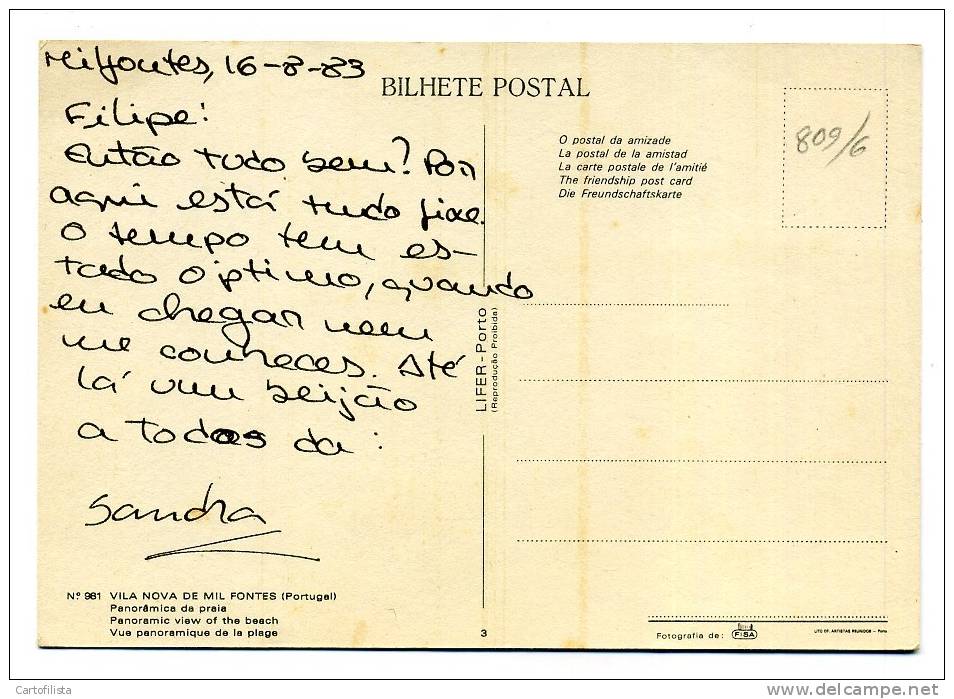 Milfontes, 16-8-83
BILHETE POSTAL
Filipe:
Então tudo bem? Por
aqui está tudo fixe.
O tempo tem es-
tado óptimo, quando
eu chegar nem
me conheces. Até
lá um beijão
a todos da:
Sandra
Nº 981 VILA NOVA DE MIL FONTES (Portugal)
Panorâmica da praia
Panoramic view of the beach
Vue panoramique de la plage
LIFER - Porto
(Reprodução Proibida)
3
O postal da amizade
La postal de la amistad
La carte postale de l'amitié
The friendship post card
Die Freundschaftskarte
809/6
Fotografia de: FISA
LITO OF. ARTISTAS REUNIDOS - Porto
Cartofilista
delcampe.net